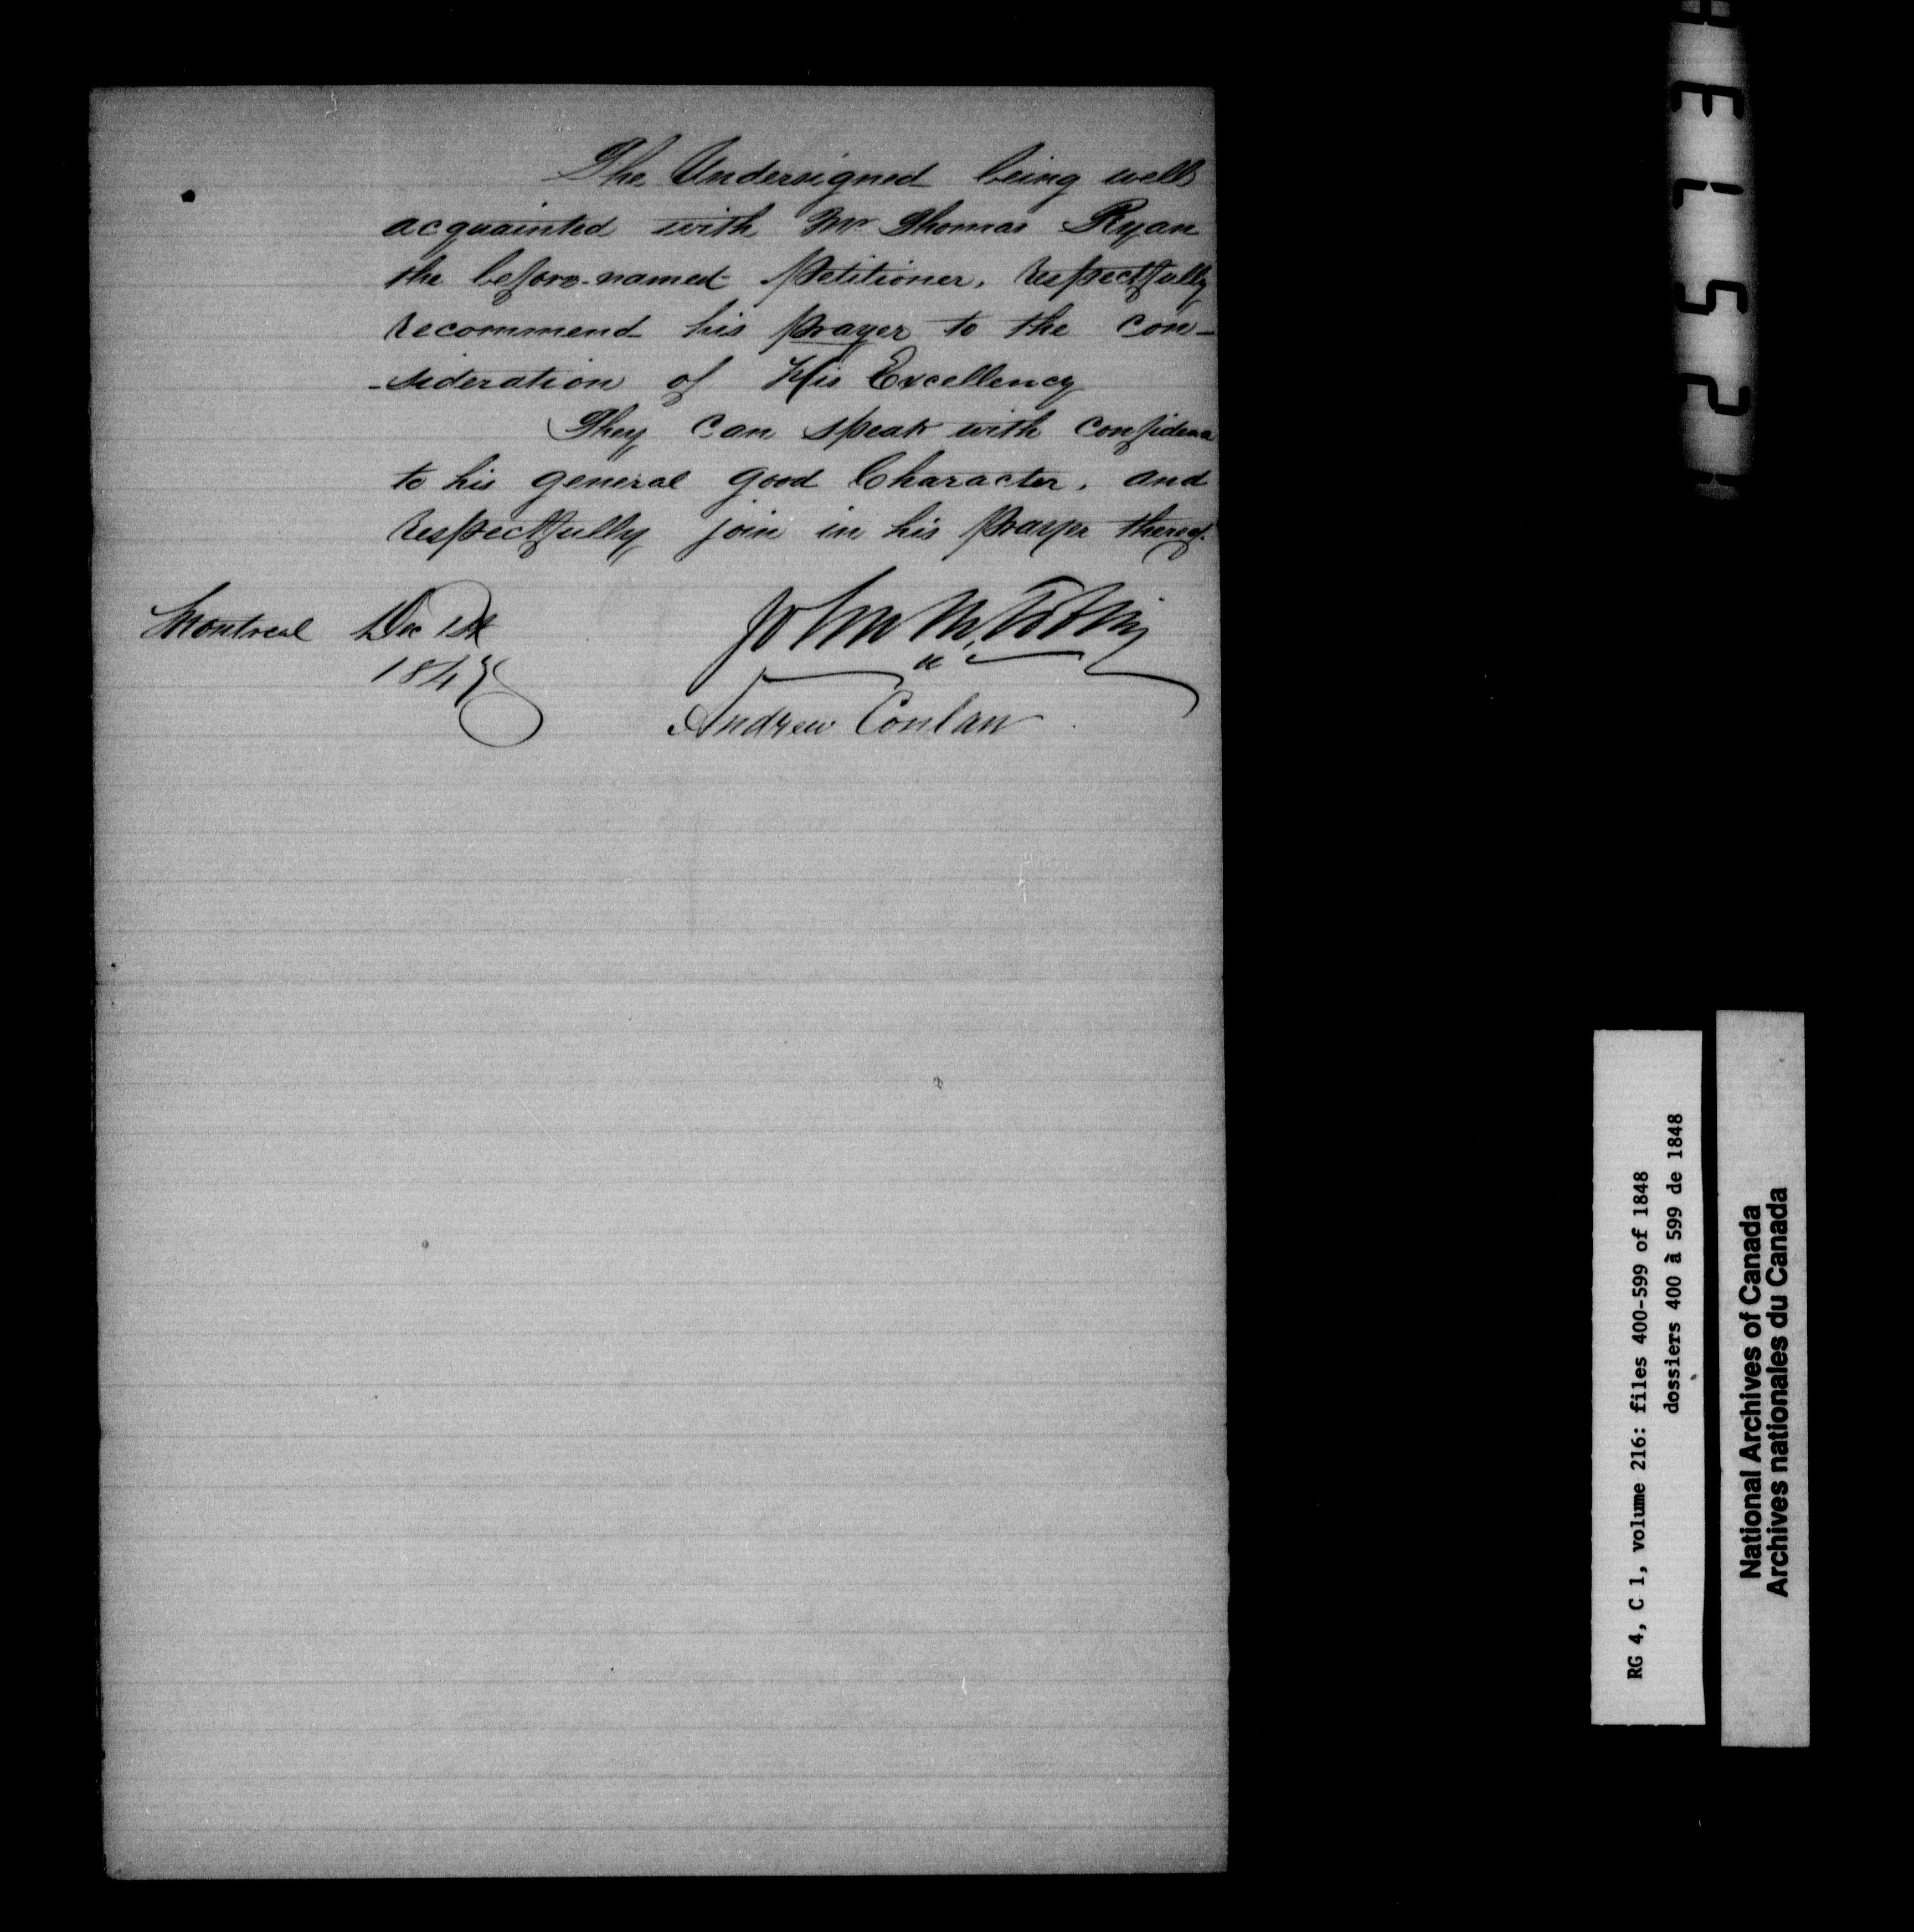 The Undersigned being well
acquainted with Mr Thomas Ryan
the before-named Petitioner, respectfully
recommend his prayer to the con-
-sideration of His Excellency
They can speak with confidence
to his general good Character, and
respectfully join in his prayer thereof.
Montreal Dec 1st
184
John
Andrew Conlan
3152
RG 4, C 1, volume 216: files 400-599 of 1848
dossiers 400 à 599 de 1848
National Archives of Canada
Archives nationales du Canada